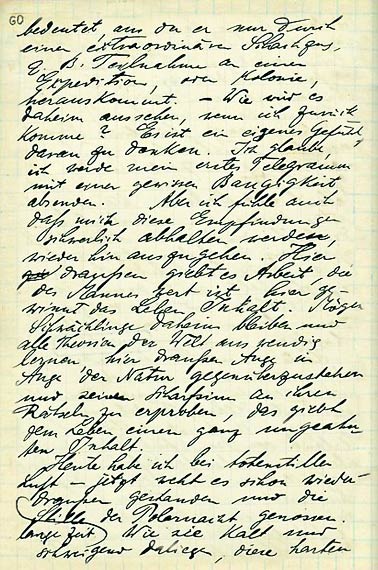 60
bedeutet, aus der er nur durch
einen extraordinären Schachzug,
z. B. Teilnahme an einer
Expedition, oder Kolonie,
herauskommt. – Wie wird es
daheim aussehen, wenn ich zurück
komme? Es ist ein eigenes Gefühl,
daran zu denken. Ich glaube,
ich werde mein erstes Telegramm
mit einer gewissen Bangigkeit
absenden. Aber ich fühle auch
daß mich diese Empfindungen
schwerlich abhalten werden,
wieder hinauszugehen. Hier
draußen giebt es Arbeit, die
des Mannes wert ist, hier ge-
winnt das Leben Inhalt. Mögen
Schwächlinge daheim bleiben und
alle Theorien der Welt auswendig
lernen, hier draußen Auge in
Auge der Natur gegenüberzustehen
und seinen Scharfsinn an ihren
Rätseln zu erproben, das giebt
dem Leben einen ganz ungeahn-
ten Inhalt.
Heute habe ich bei totenstiller
Luft – jetzt weht es schon wieder –
draußen gestanden und die
Stille der Polarnacht genossen.
lange Zeit) Wie sie kalt und
schweigend daliegen, diese harten